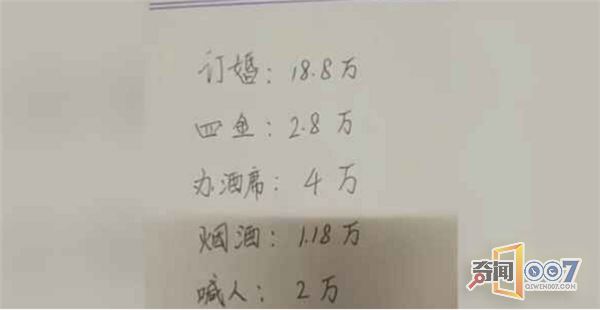 订婚：18.8万
四金：2.8万
办酒席：4万
烟酒：1.18万
喊人：2万
奇闻007
QIWEN007.COM